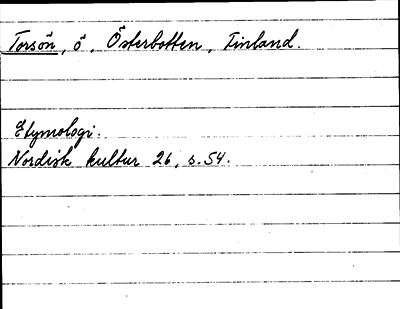 Torsön, ö, Österbotten, Finland.
Etymologi.
Nordisk kultur 26, s. 54.